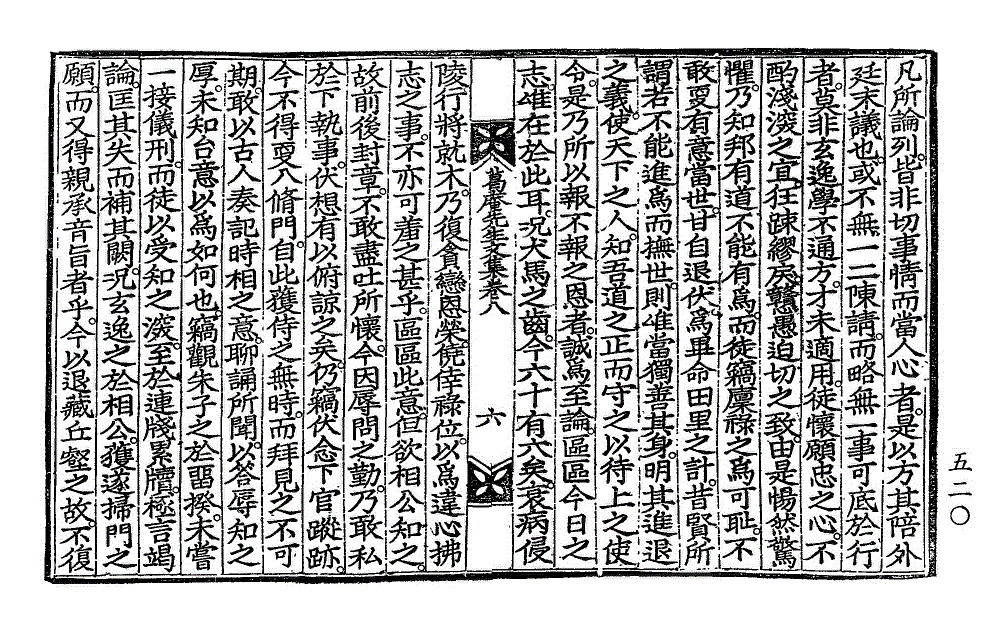 凡所論列。皆非切事情而當人心者。是以方其陪外
廷末議也。或不無一二陳請。而略無一事可底於行
者。莫非玄逸學不通方。才未適用。徒懷願忠之心。不
酌淺深之宜。狂踈繆戾。戇愚迫切之致。由是惕然驚
懼。乃知邦有道不能有爲。而徒竊廩祿之爲可耻。不
敢更有意當世。甘自退伏。爲畢命田里之計。昔賢所
謂若不能進爲而撫世。則唯當獨善其身。明其進退
之義。使天下之人。知吾道之正而守之以待上之使
令。是乃所以報不報之恩者。誠爲至論。區區今日之
志。唯在於此耳。况犬馬之齒。今六十有六矣。衰病侵
葛庵先生文集卷八
六
陵。行將就木。乃復貪戀恩榮。僥倖祿位。以爲違心拂
志之事。不亦可羞之甚乎。區區此意。但欲相公知之。
故前後封章。不敢盡吐所懷。今因辱問之勤。乃敢私
於下執事。伏想有以俯諒之矣。仍竊伏念下官蹤跡。
今不得更入脩門。自此獲侍之無時。而拜見之不可
期。敢以古人奏記時相之意。聊誦所聞。以答辱知之
厚。未知台意以爲如何也。竊觀朱子之於留揆。未嘗
一接儀刑。而徒以受知之深。至於連牋累牘。極言竭
論。匡其失而補其闕。况玄逸之於相公。獲遂掃門之
願。而又得親承音旨者乎。今以退藏丘壑之故。不復
五二〇